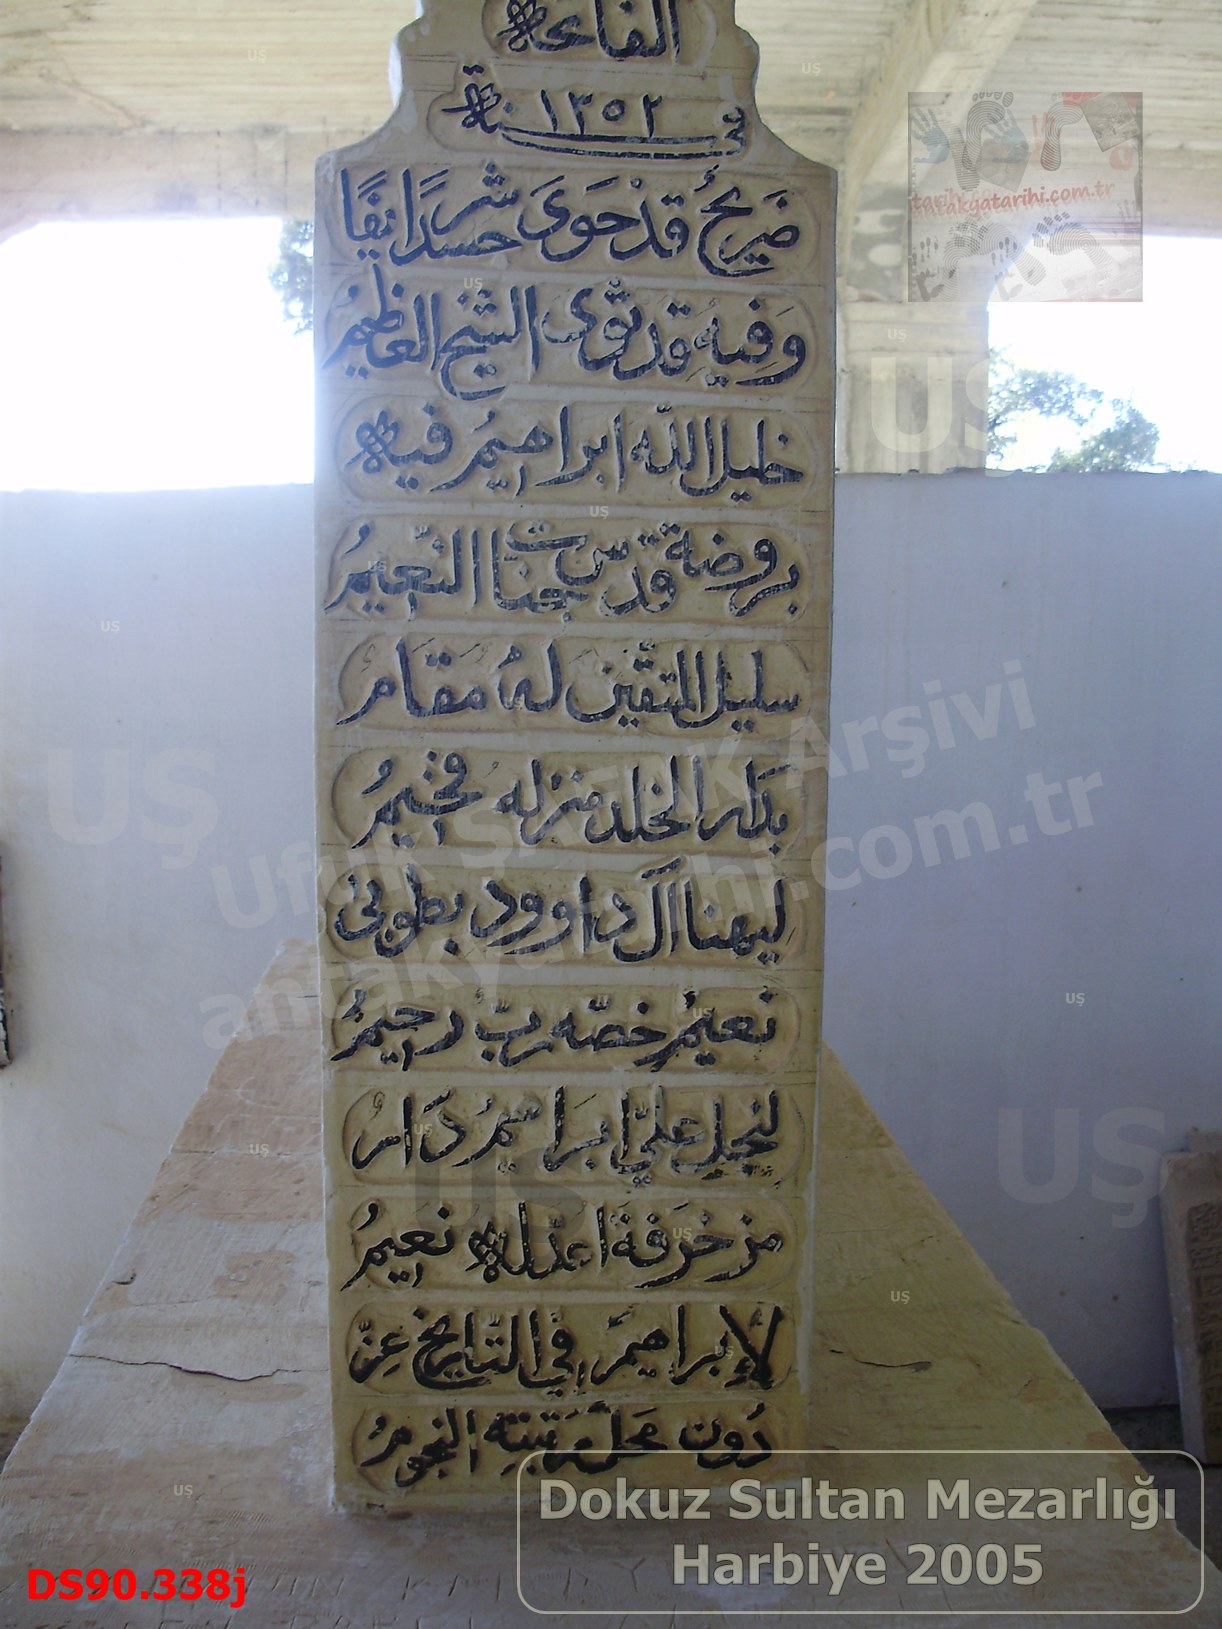 الفاتحة
في سنة ١٣٥٢
ضَريحُ قَدْ حَوَى جسدًا شريفًا
وَفيهِ قَد ثَوى الشيخ العَظيمُ
خليل الله ابراهيمُ فيه
بروضة قدس جنات النّعيمُ
سليل المتّقين لهُ مَقَام
بدَار الخلد منزله فخيمُ
ليهنا آل داوود بطوبى
نعيمُ خصّه ربّ رحيمُ
لنجل علي ابرَاهيمُ دَارُ
مزخرَفة نعيمُ
لإبراهيم في التّاريخ عزّ
دُون محلّ رتبته النجومُ
tarihi
antakyatarihi.com.tr
UŞ
Ufuk Arşivi
antakyatarihi.com.tr
Dokuz Sultan Mezarlığı
Harbiye 2005
DS90.338j